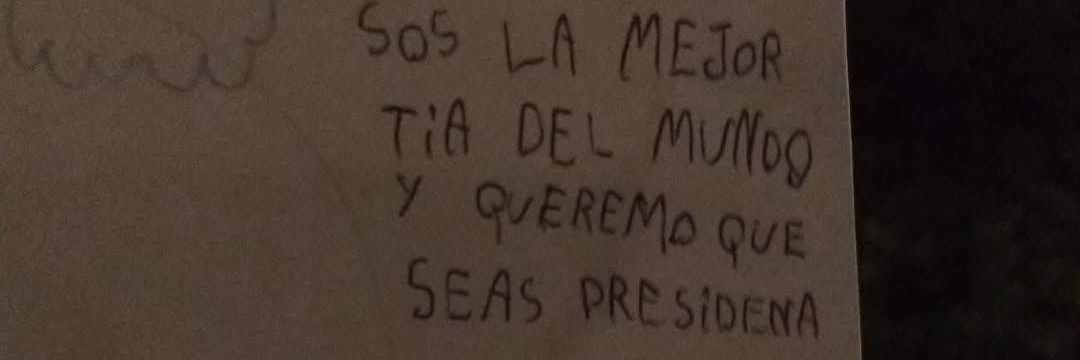 SOS LA MEJOR
TiA DEL MUNDO
Y QUEREMO QUE
SEAS PRESiDENA